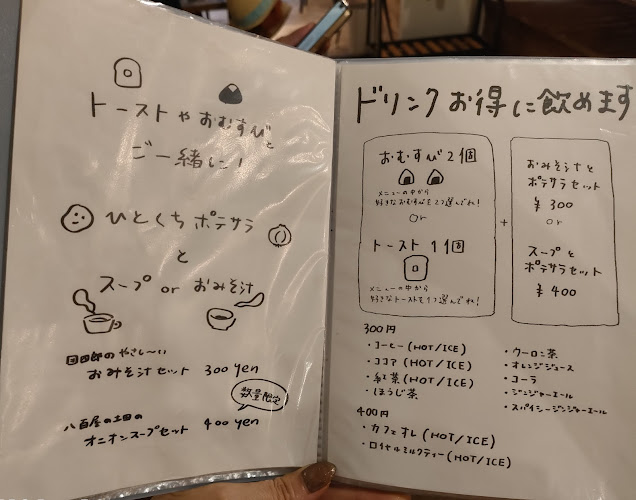 トーストやおむすびと
ご一緒に!
ひとくちポテサラ
と
スープ or おみそ汁
おみそ汁セット 300 yen
数量限定
八百屋の土田の
オニオンスープセット 400 yen
ドリンクお得に飲めます
おむすび2個
メニューの中から
好きなおむすびを2つ選んでね!
or
トースト1個
メニューの中から
好きなトーストを1つ選んでね!
+
おみそ汁と
ポテサラセット
¥300
or
スープと
ポテサラセット
¥400
300円
・コーヒー(HOT/ICE)
・ココア(HOT/ICE)
・紅茶(HOT/ICE)
・ほうじ茶
・ウーロン茶
・オレンジジュース
・コーラ
・ジンジャーエール
・スパイシージンジャーエール
400円
・カフェオレ(HOT/ICE)
・ロイヤルミルクティー(HOT/ICE)